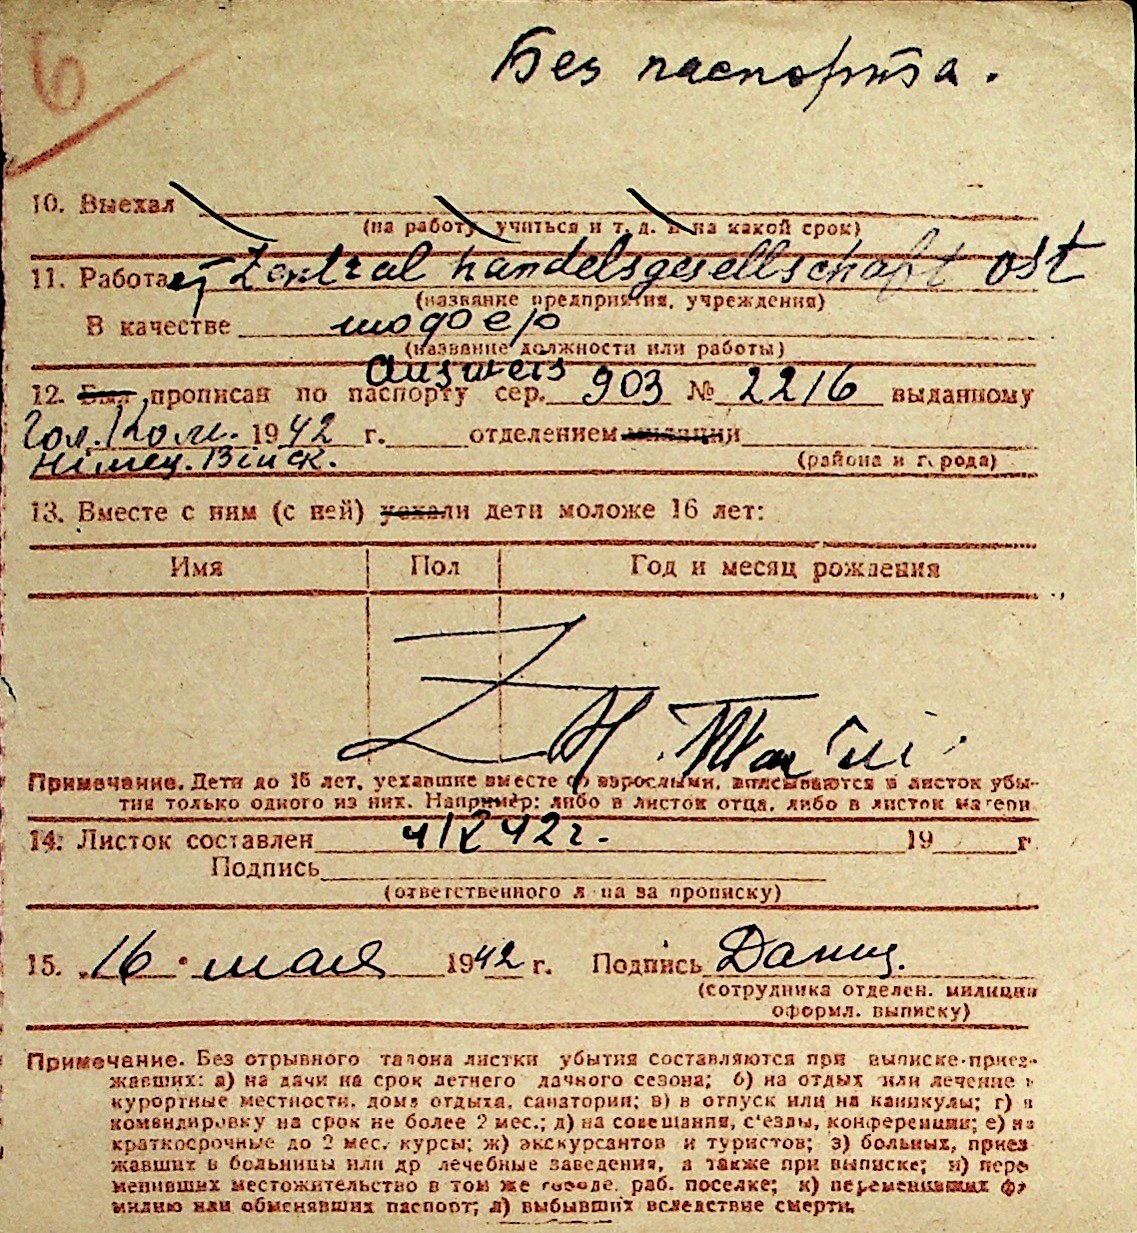 6
Без паспорта.
10. Выехал
(на работу учиться и т. д. и на какой срок)
11. Работает Zentral handelsgesellschaft ost
(название предприятия, учреждения)
В качестве шофоер
(название должности или работы)
Ausweis
12. Был прописан по паспорту сер. 903 № 2216 выданному
Гол. Ком. 1942 г. отделением милиции
Німец. Війск.
(района и города)
13. Вместе с ним (с ней) уехали дети моложе 16 лет:
Имя Пол Год и месяц рождения
Примечание. Дети до 16 лет, уехавшие вместе со взрослыми, вписываются в листок убы-
тия только одного из них. Например: либо в листок отца, либо в листок матери
14. Листок составлен 4/X 42 г. 19 г.
Подпись
(ответственного лица за прописку)
15. 16 мая 1942 г. Подпись Данищ.
(сотрудника отделен. милиции
оформл. выписку)
Примечание. Без отрывного талона листки убытия составляются при выписке приез-
жавших: а) на дачи на срок летнего дачного сезона; б) на отдых или лечение в
курортные местности, дома отдыха, санатории; в) в отпуск или на каникулы; г) в
командировку на срок не более 2 мес.; д) на совещания, с'езды, конференции; е) на
краткосрочные до 2 мес. курсы; ж) экскурсантов и туристов; з) больных, приез
жавших в больницы или др лечебные заведения, а также при выписке; и) пере
менивших местожительство в том же городе, раб. поселке; к) переменивших фа
милию или обменявших паспорт; л) выбывших вследствие смерти.